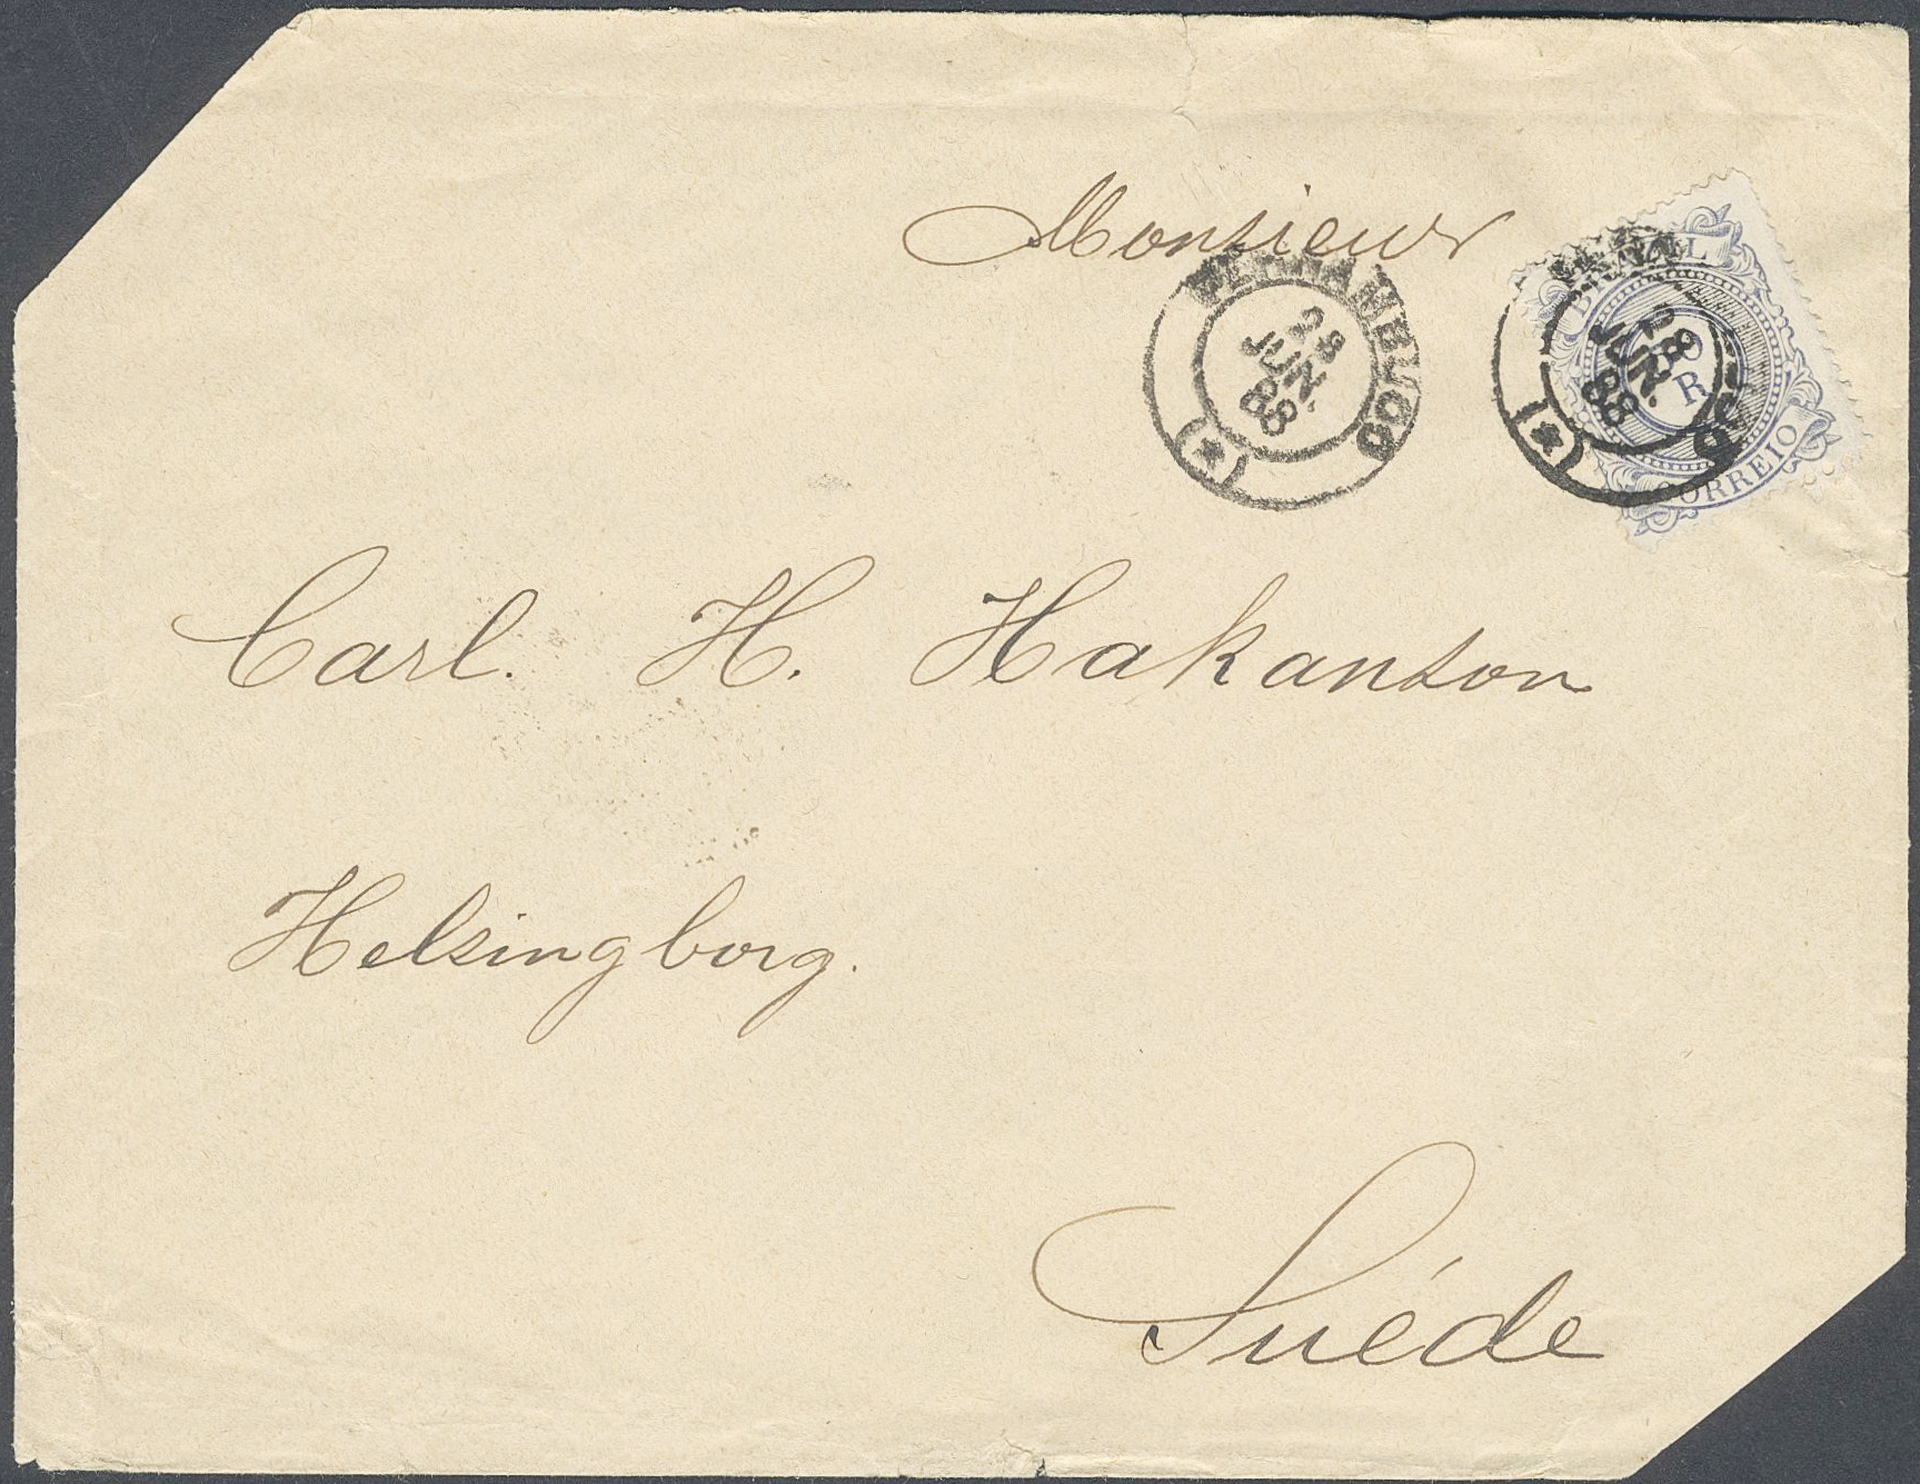 Monsieur
PERNAMBUCO
28
JUN.
88
BRAZIL
R
CORREIO
28
JUN.
88
Carl. H. Hakanson
Helsingborg.
Suéde